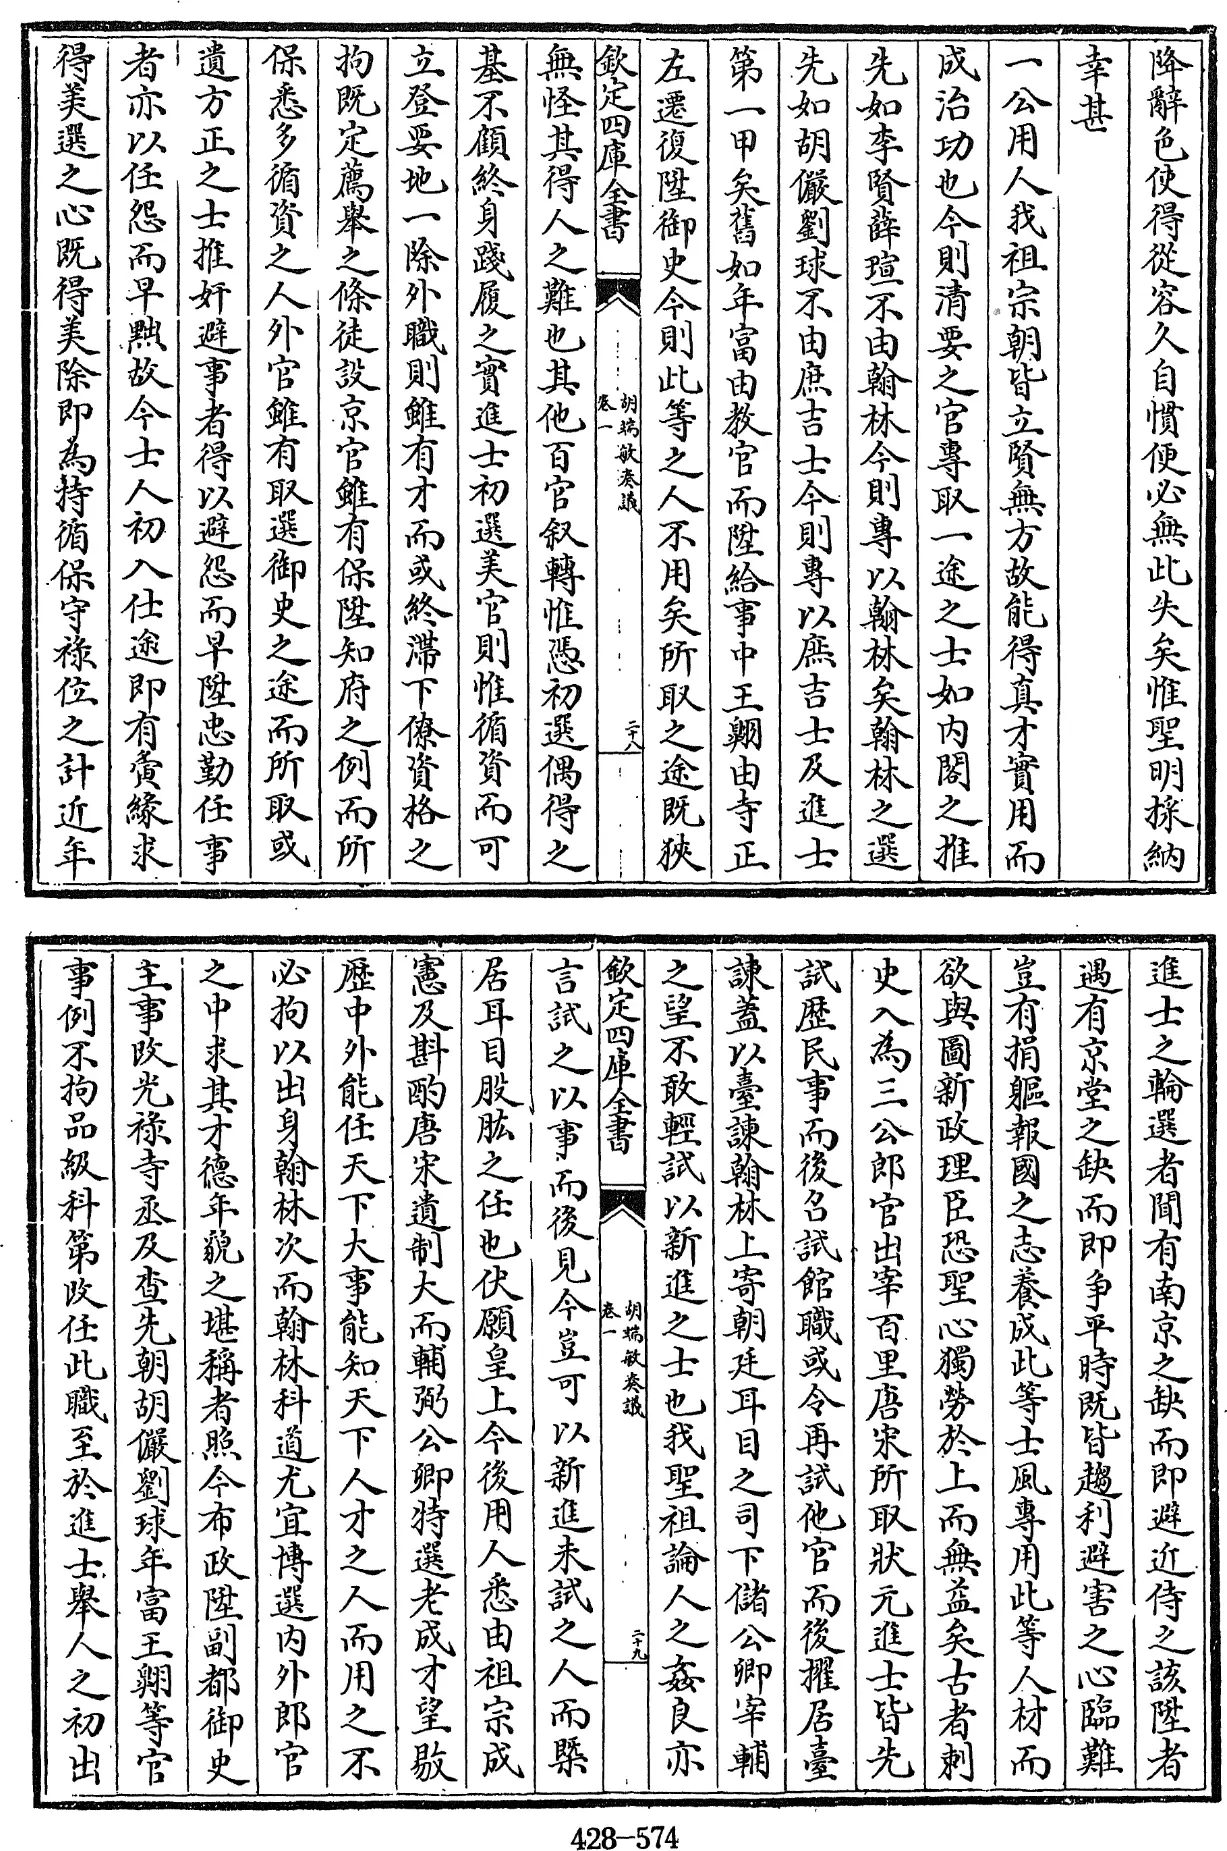 降辭色使得從容久自慣便必無此失矣惟聖明採納
幸甚
一公用人我祖宗朝皆立賢無方故能得真才實用而
成治功也今則清要之官專取一途之士如内閣之推
先如李賢薛瑄不由翰林今則專以翰林矣翰林之選
先如胡儼劉球不由庶吉士今則專以庶吉士及進士
第一甲矣舊如年富由教官而陞給事中王翺由寺正
左遷復陞御史今則此等之人不用矣所取之途既狹
欽定四庫全書
胡端敏奏議
卷一
二十八
無怪其得人之難也其他百官叙轉惟憑初選偶得之
基不顧終身踐履之實進士初選美官則惟循資而可
立登要地一除外職則雖有才而或終滯下僚資格之
拘既定薦舉之條徒設京官雖有保陞知府之例而所
保悉多循資之人外官雖有取選御史之途而所取或
遺方正之士推奸避事者得以避怨而早陞忠勤任事
者亦以任怨而早黜故今士人初入仕途即有夤緣求
得美選之心既得美除即為持循保守祿位之計近年
進士之輪選者聞有南京之缺而即避近侍之該陞者
遇有京堂之缺而即爭平時既皆趨利避害之心臨難
豈有捐軀報國之志養成此等士風專用此等人材而
欲與圖新政理臣恐聖心獨勞於上而無益矣古者刺
史入為三公郎官出宰百里唐宋所取狀元進士皆先
試歷民事而後召試館職或令再試他官而後擢居臺
諫蓋以臺諫翰林上寄朝廷耳目之司下儲公卿宰輔
之望不敢輕試以新進之士也我聖祖論人之姦良亦
欽定四庫全書
胡端敏奏議
卷一
二十九
言試之以事而後見今豈可以新進未試之人而槩
居耳目股肱之任也伏願皇上今後用人悉由祖宗成
憲及斟酌唐宋遺制大而輔弼公卿特選老成才望敭
歷中外能任天下大事能知天下人才之人而用之不
必拘以出身翰林次而翰林科道尤宜博選内外郎官
之中求其才德年貌之堪稱者照今布政陞副都御史
主事改光祿寺丞及查先朝胡儼劉球年富王翺等官
事例不拘品級科第改任此職至於進士舉人之初出
428-574